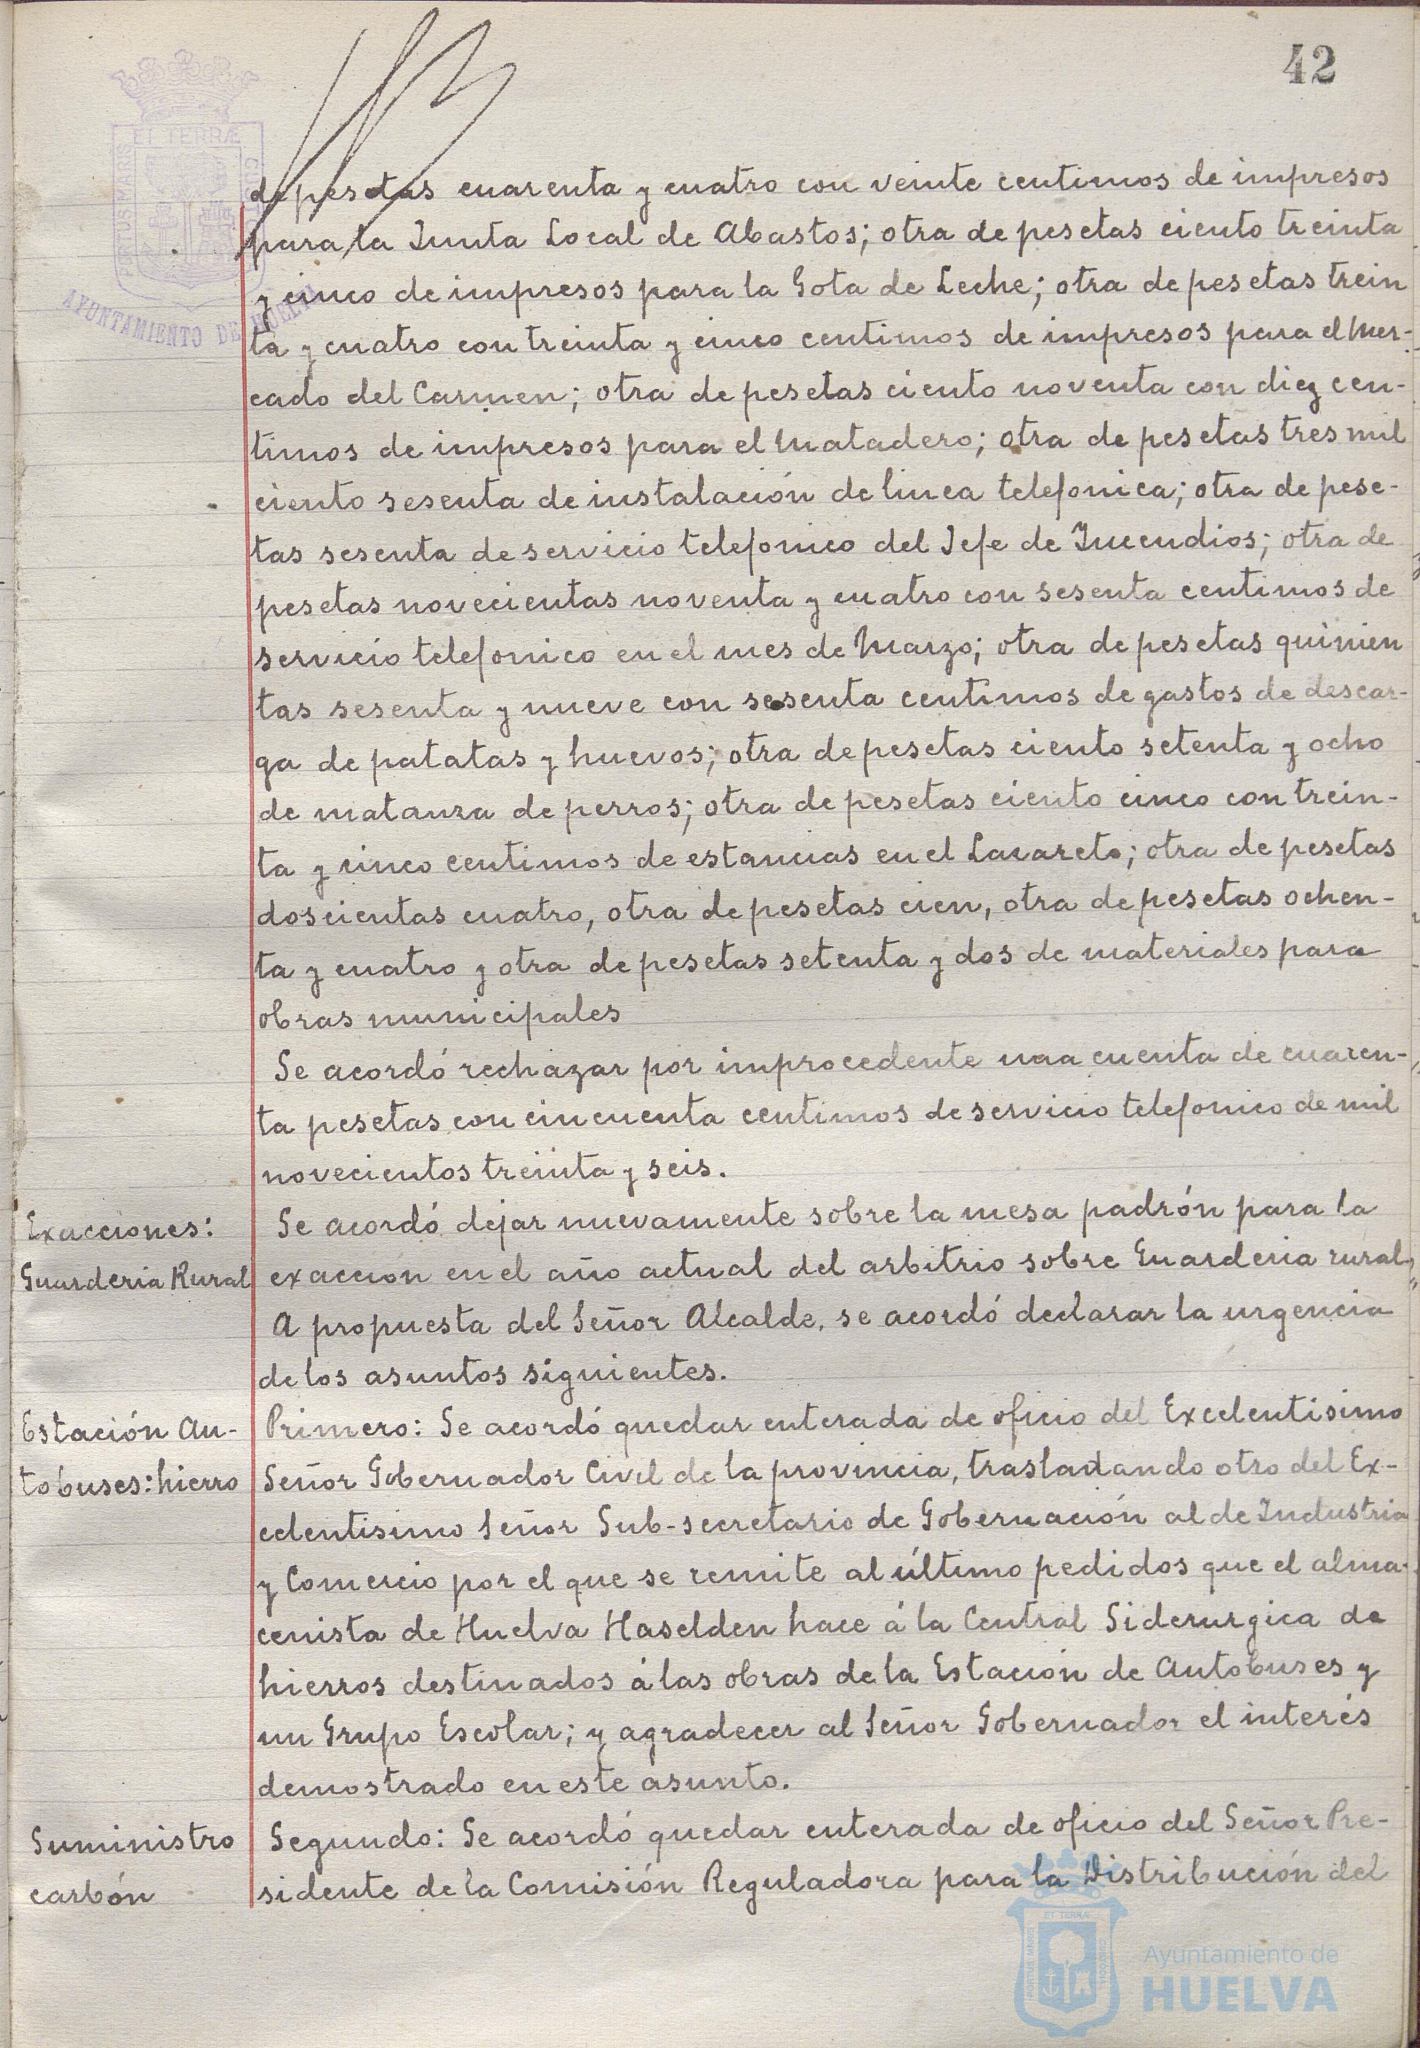 42
PORTUS MARIS ET TERRÆ CUSTODIA
AYUNTAMIENTO DE HUELVA
de pesetas cuarenta y cuatro con veinte centimos de impresos
para la Junta Local de Abastos; otra de pesetas ciento treinta
y cinco de impresos para la Gota de Leche; otra de pesetas trein
ta y cuatro con treinta y cinco centimos de impresos para el Mer-
cado del Carmen; otra de pesetas ciento noventa con diez cen-
timos de impresos para el Matadero; otra de pesetas tres mil
ciento sesenta de instalación de linea telefonica; otra de pese-
tas sesenta de servicio telefonico del Jefe de Incendios; otra de
pesetas novecientas noventa y cuatro con sesenta centimos de
servicio telefonico en el mes de Marzo; otra de pesetas quinien
tas sesenta y nueve con sesenta centimos de gastos de descar-
ga de patatas y huevos; otra de pesetas ciento setenta y ocho
de matanza de perros; otra de pesetas ciento cinco con trein-
ta y cinco centimos de estancias en el Lazareto; otra de pesetas
doscientas cuatro, otra de pesetas cien, otra de pesetas ochen-
ta y cuatro y otra de pesetas setenta y dos de materiales para
obras municipales
Se acordó rechazar por improcedente una cuenta de cuaren-
ta pesetas con cincuenta centimos de servicio telefonico de mil
novecientos treinta y seis.
Exacciones:
Guarderia Rural
Se acordó dejar nuevamente sobre la mesa padrón para la
exaccion en el año actual del arbitrio sobre Guarderia rural,
A propuesta del Señor Alcalde, se acordó declarar la urgencia
de los asuntos siguientes.
Estación Au-
tobuses: hierro
Primero: Se acordó quedar enterada de oficio del Excelentisimo
Señor Gobernador Civil de la provincia, trasladando otro del Ex-
celentisimo Señor Sub-secretario de Gobernación al de Industria
y Comercio por el que se remite al último pedidos que el alma-
cenista de Huelva Haselden hace á la Central Siderurgica de
hierros destinados á las obras de la Estación de Autobuses y
un Grupo Escolar; y agradecer al Señor Gobernador el interés
demostrado en este asunto.
Suministro
carbón
Segundo: Se acordó quedar enterada de oficio del Señor Pre-
sidente de la Comisión Reguladora para la Distribución del
Ayuntamiento de
HUELVA